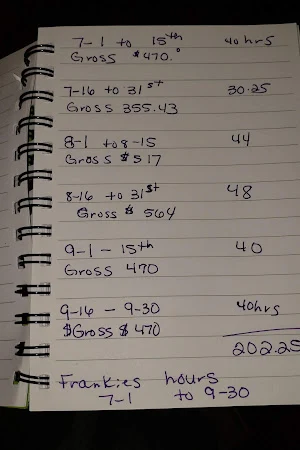 7-1 to 15th 40 hrs
Gross $470.°
7-16 to 31st 30.25
Gross 355.43
8-1 to 8-15 44
Gross $517
8-16 to 31st 48
Gross $ 564
9-1 - 15th 40
Gross 470
9-16 - 9-30 40hrs
$Gross $470
202.25
Frankies hours
7-1 to 9-30